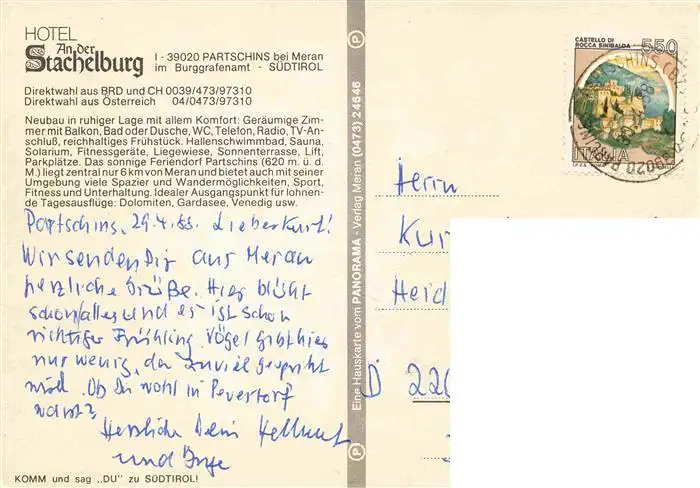 HOTEL
An der
Stachelburg
I - 39020 PARTSCHINS bei Meran
im Burggrafenamt - SÜDTIROL
Direktwahl aus BRD und CH 0039/473/97310
Direktwahl aus Österreich 04/0473/97310
Neubau in ruhiger Lage mit allem Komfort: Geräumige Zim-
mer mit Balkon, Bad oder Dusche, WC, Telefon, Radio, TV-An-
schluß, reichhaltiges Frühstück. Hallenschwimmbad, Sauna,
Solarium, Fitnessgeräte, Liegewiese, Sonnenterrasse, Lift,
Parkplätze. Das sonnige Feriendorf Partschins (620 m. ü. d.
M.) liegt zentral nur 6 km von Meran und bietet auch mit seiner
Umgebung viele Spazier und Wandermöglichkeiten, Sport,
Fitness und Unterhaltung. Idealer Ausgangspunkt für lohnen-
de Tagesausflüge: Dolomiten, Gardasee, Venedig usw.
Partschins, 29.4.88. Lieber Kurt!
Wir senden Dir aus Meran
herzliche Grüße. Hier blüht
schon alles und es ist schon
richtiger Frühling. Vögel gibt hier
nur wenig, da zuviel gespritzt
wird. Ob Du wohl in Pevestorf
warst?
Herzlichst Dein Hellmut
und Inge
KOMM und sag „DU" zu SÜDTIROL!
Eine Hauskarte vom PANORAMA - Verlag Meran (0473) 24646
CASTELLO DI
ROCCA SINIBALDA
550
ITALIA
Herrn
Kur
Heid
D 220